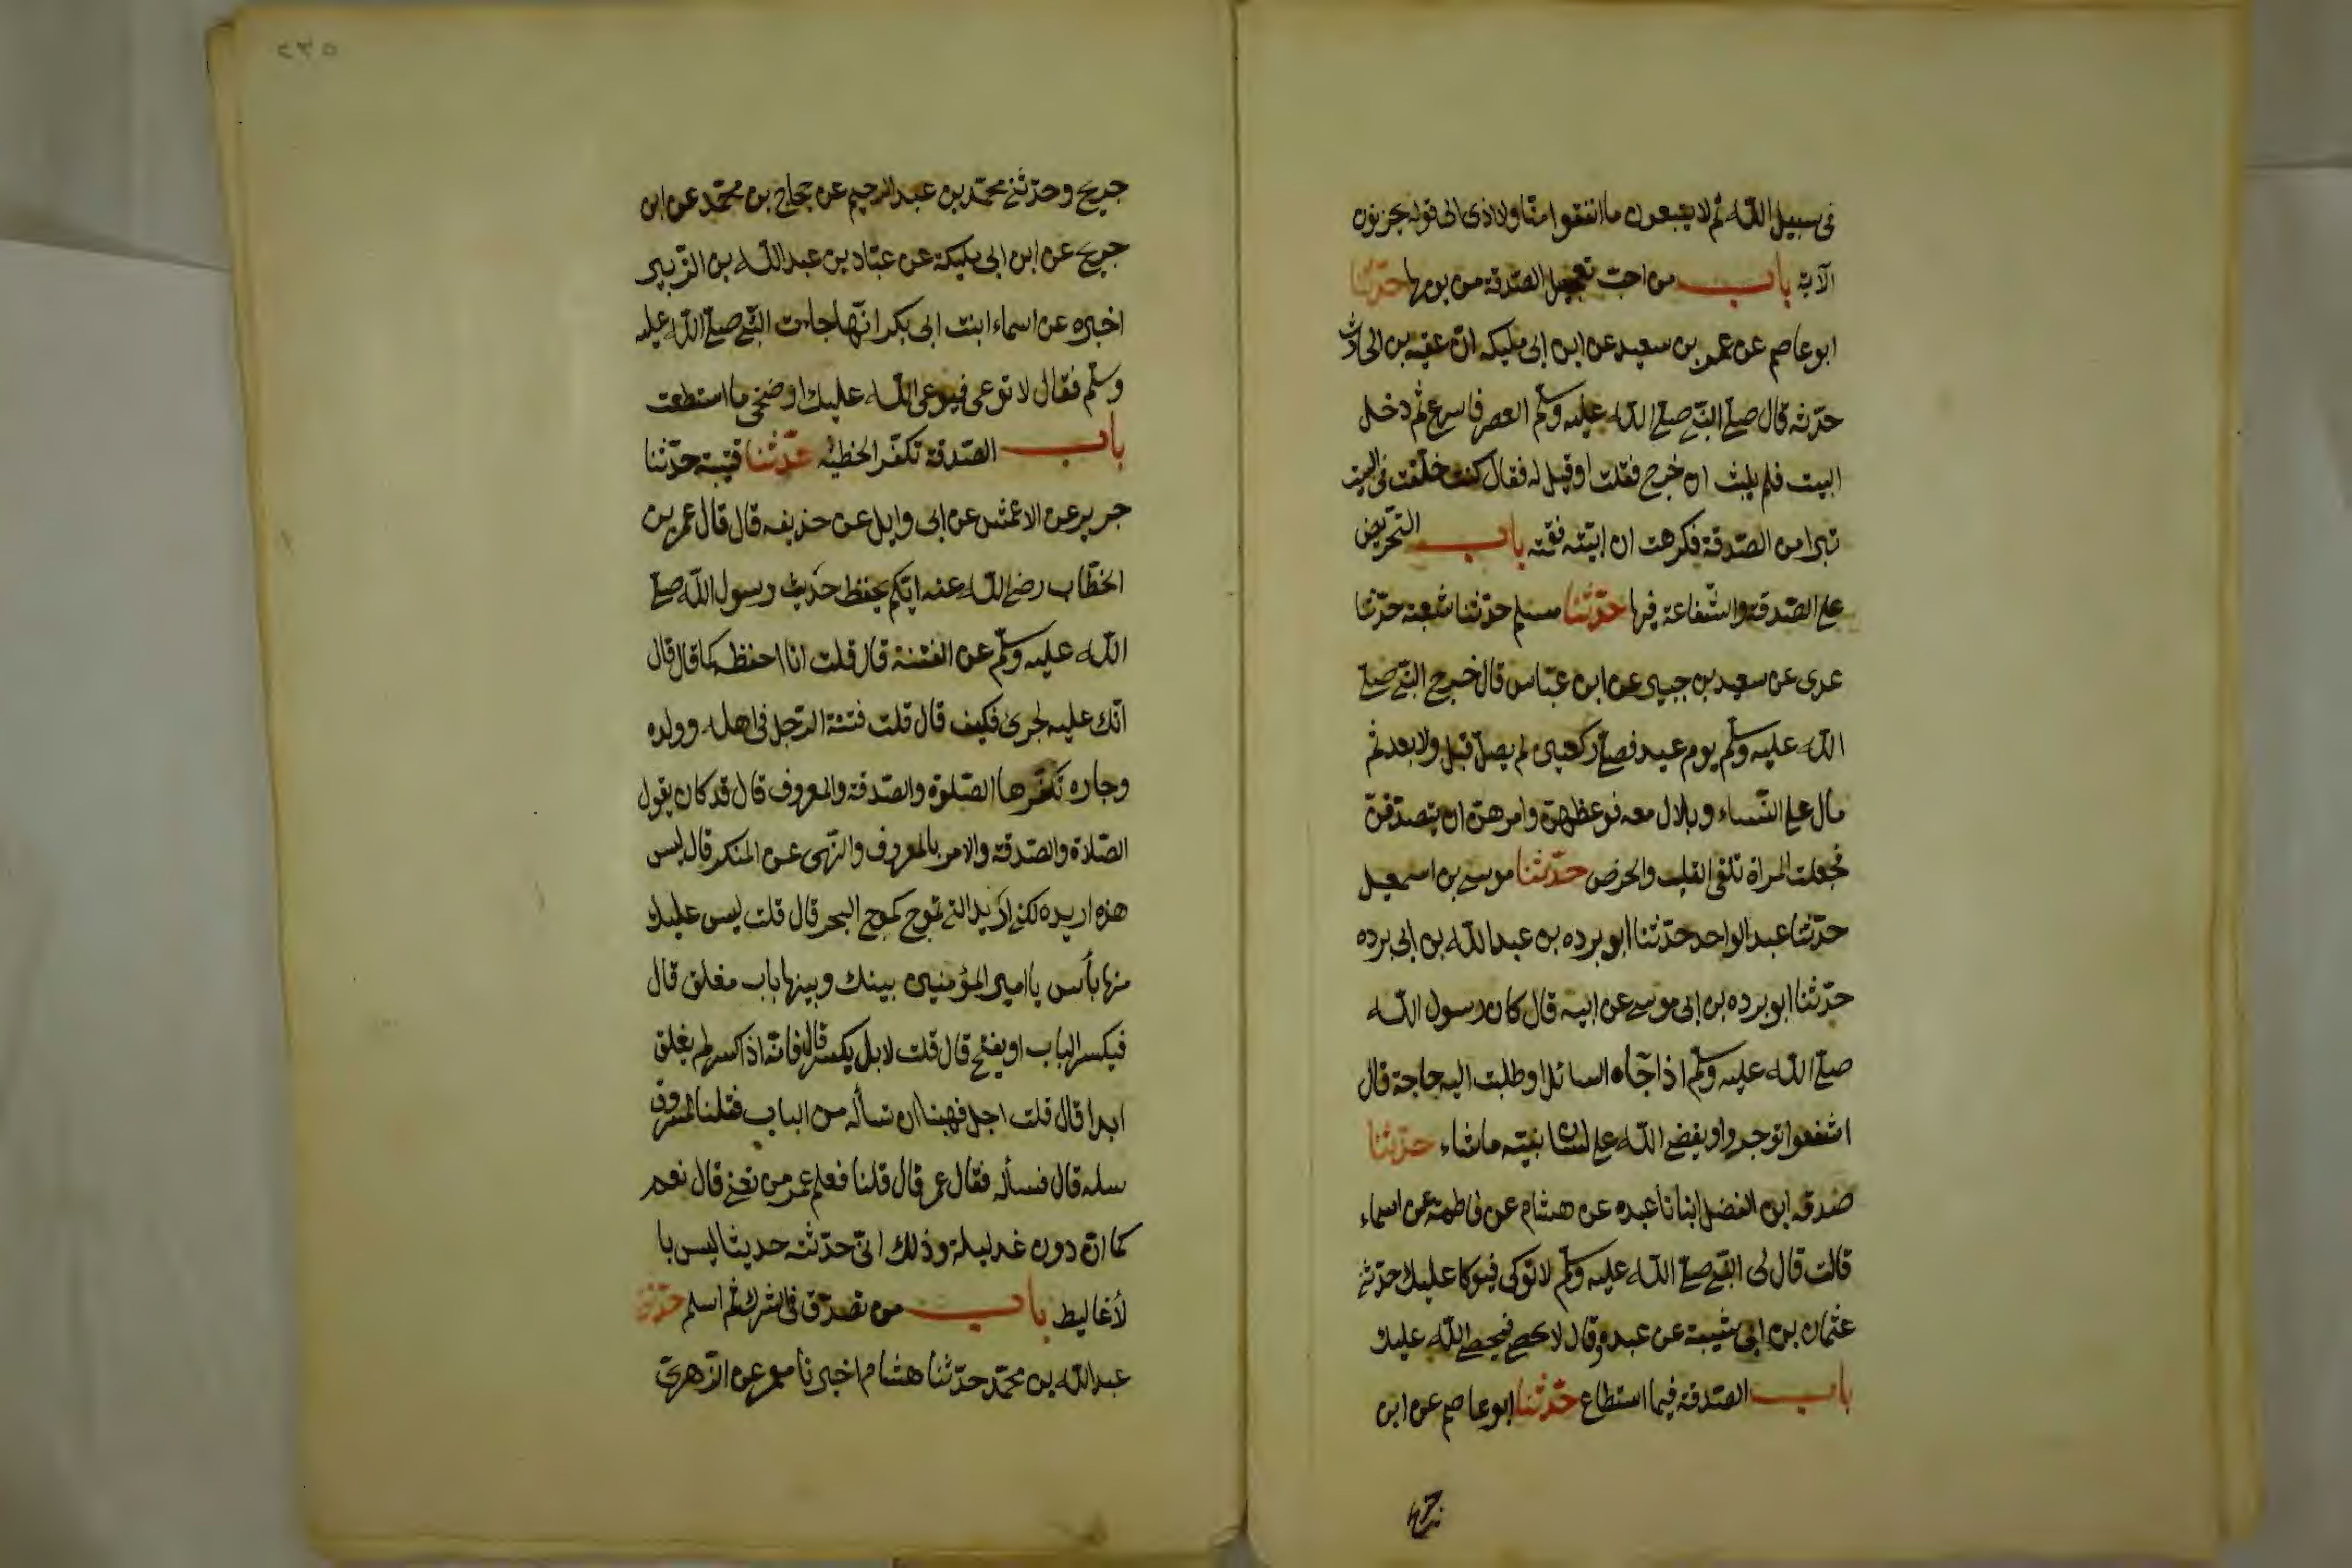 فى سبيل الله ثم لا يتبعون ما انفقوا منّا ولا اذى الى قوله يحزنون
الآية باب من احب تعجيل الصّدقة من يومها حدّثنا
ابو عاصم عن عمر بن سعيد عن ابن ابى مليكه انّ عقبه بن الحارث
حدّثه قال صلّى النّبى صلّى الله عليه وسلّم العصر فاسرع ثم دخل
البيت فلم يلبث ان خرج فقلت او قيل له فقال كنت خلّفت فى البيت
تبرا من الصّدقة فكرهت ان ابيّته فقسمته باب التّحريض
على الصّدقة والشّفاعة فيها حدّثنا مسلم حدّثنا شعبة حدّثنا
عدى عن سعيد بن جبير عن ابن عبّاس قال خرج النّبى صلّى
الله عليه وسلّم يوم عيد فصلّى ركعتين لم يصلّ قبل ولا بعد ثم
مال على النّساء وبلال معه فوعظهنّ وامرهنّ ان يتصدّقن
فجعلت المراة تلقى القلب والخرص حدّثنا موسى بن اسمعيل
حدّثنا عبد الواحد حدّثنا ابو برده بن عبد الله بن ابى برده
حدّثنا ابو برده بن ابى موسى عن ابيه قال كان رسول الله
صلّى الله عليه وسلّم اذا جآءه السائل او طلبت اليه حاجة قال
اشفعوا توجروا ويقضى الله على لسان نبيّه ما شاء حدّثنا
صدقه ابن الفضل انبانا عبده عن هشام عن فاطمة عن اسماء
قالت قال لى النّبى صلّى الله عليه وسلّم لا توكى فيوكا عليك حدّثنى
عثمان بن ابى شيبة عن عبده وقال لا تحصى فيحصى الله عليك
باب الصّدقة فيما استطاع حدّثنا ابو عاصم عن ابن
جريج
٢٣٥
جريج وحدّثنى محمّد بن عبد الرحيم عن حجاج بن محمّد عن ابن
جريج عن ابن ابى مليكة عن عبّاد بن عبد الله بن الزّبير
اخبره عن اسماء ابنت ابى بكر انّها جاءت النّبى صلّى الله عليه
وسلّم فقال لا توعى فيوعى الله عليك اوضخى ما استطعت
باب الصّدقة تكفّر الخطيئه حدّثنا قتيبة حدّثنا
جرير عن الاعمش عن ابى وايل عن حذيفه قال قال عمر بن
الخطّاب رضى الله عنه ايّكم يحفظ حديث رسول الله صلّى
الله عليه وسلّم عن الفتنة قال قلت انا احفظه كما قال قال
انّك عليه لجرئ فكيف قال قلت فتنة الرّجل فى اهله وولده
وجاره تكفّرها الصّلوة والصّدقة والمعروف قال قد كان يقول
الصّلاة والصّدقة والامر بالمعروف والنّهى عن المنكر قال ليس
هذه اريده لكنى اريد التى تموج كموج البحر قال قلت ليس عليك
منها بأس يا امير المؤمنين بينك وبينها باب مغلق قال
فيكسر الباب او يفتح قال قلت لا بل يكسر قال فانّه اذا كسر لم يغلق
ابدا قال قلت اجل فهبنا ان نسأله من الباب فقلنا لمسروق
سله قال فسأله فقال عمر قال قلنا فعلم عمر من تعنى قال نعم
كما انّ دون غد ليلة وذلك انّى حدّثته حديثا ليس با
لأغاليط باب من تصدّق فى الشرك ثم اسلم حدّثنا
عبد الله بن محمّد حدّثنا هشام اخبرنا معمر عن الزّهرىّ